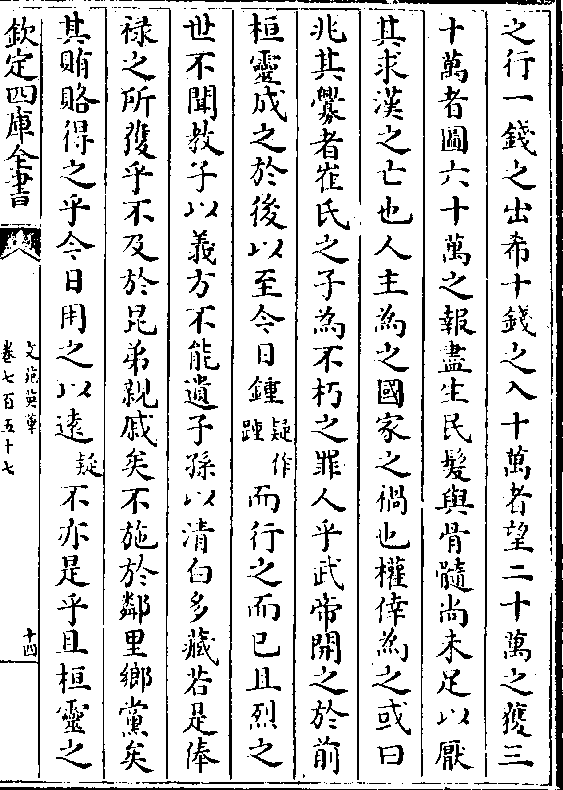 之行一錢之出希十錢之入十萬者望二十萬之獲三
十萬者圖六十萬之報盡生民髮與骨髓尚未足以厭
其求漢之亡也人主為之國家之禍也權倖為之或曰
兆其釁者崔氏之子為不朽之罪人乎武帝開之於前
桓靈成之於後以至今日鍾疑作踵而行之而已且烈之
世不聞教子以義方不能遺子孫以清白多藏若是俸
禄之所獲乎不及於昆弟親戚矣不施於鄰里鄉黨矣
其賄賂得之乎今日用之以遠疑不亦是乎且桓靈之
欽定四庫全書
文苑英華
卷七百五十七
十四